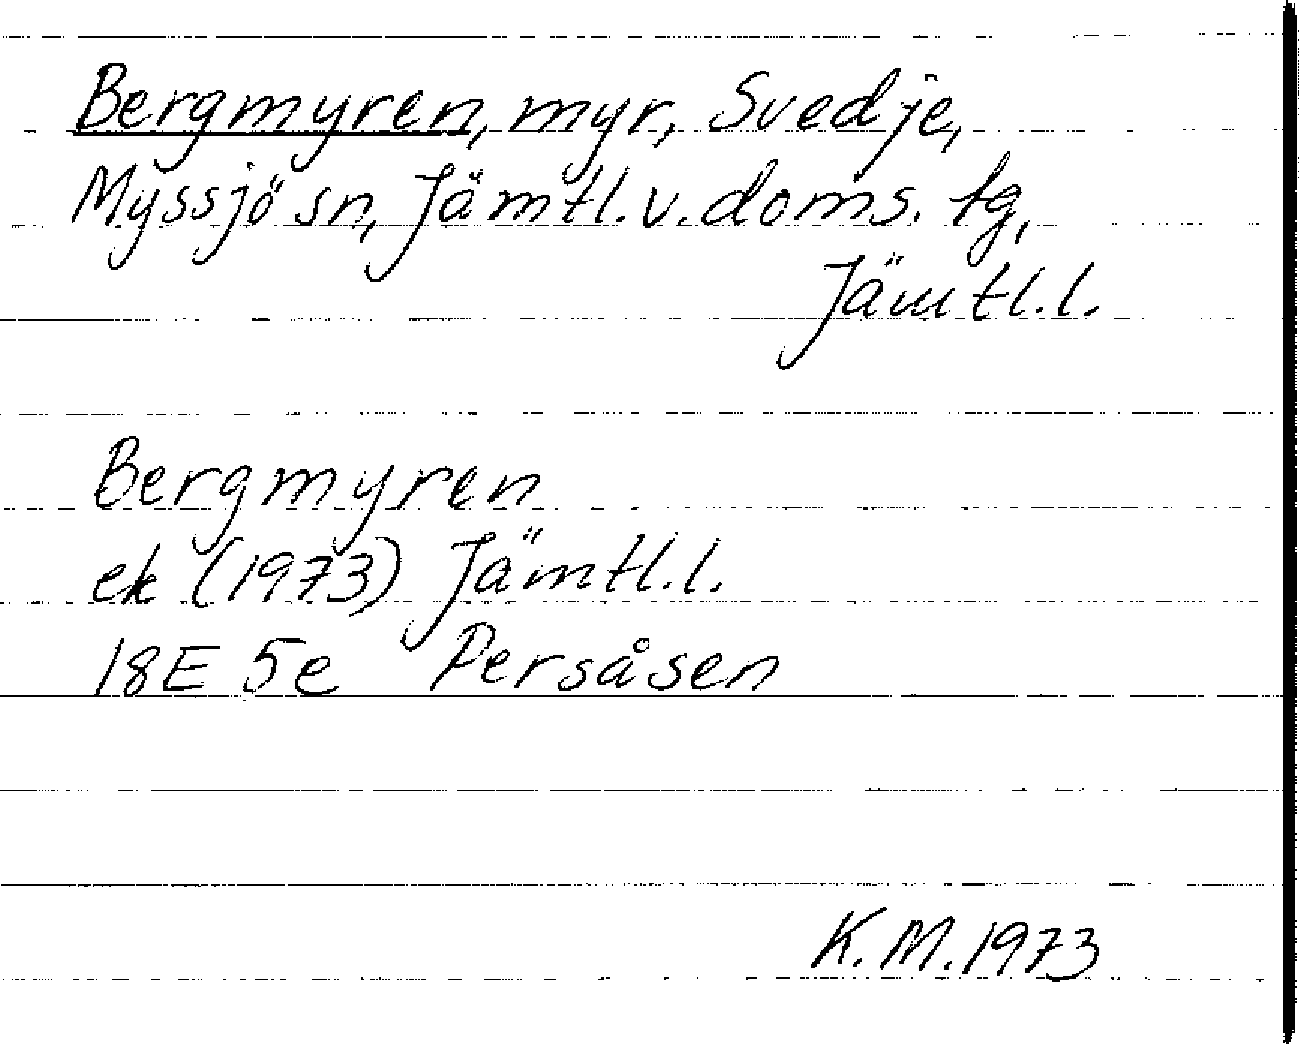 Bergmyren, myr, Svedje,
Myssjö sn, Jämtl. v. doms. tg,
Jämtl. l.
Bergmyren
ek (1973) Jämtl. l.
18E 5e Persåsen
K. M. 1973